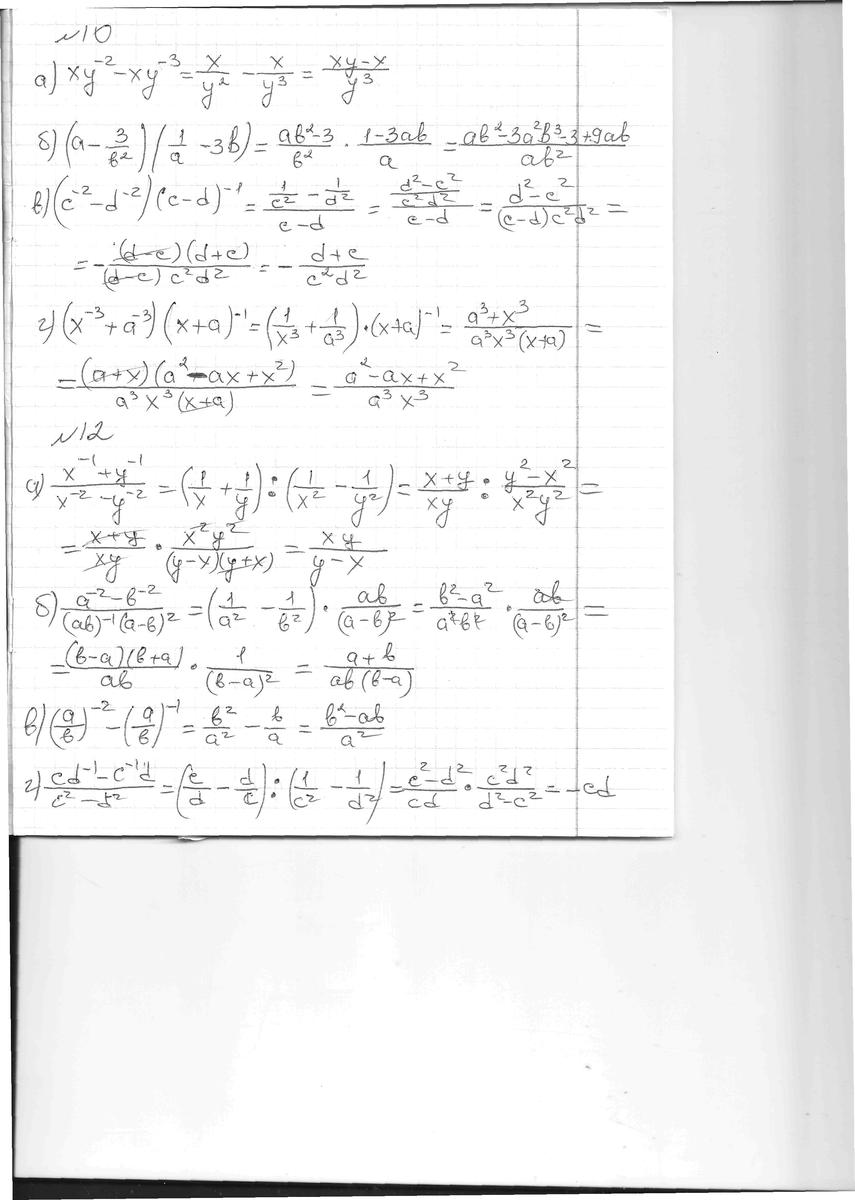 №10
а) xy⁻² - xy⁻³ = x/y² - x/y³ = (xy-x)/y³
б) (a - 3/b²)(1/a - 3b) = (ab²-3)/b² · (1-3ab)/a = (ab²-3a²b³-3+9ab)/ab²
в) (c⁻² - d⁻²)(c-d)⁻¹ = (1/c² - 1/d²)/(c-d) = ((d²-c²)/c²d²)/(c-d) = (d²-c²)/((c-d)c²d²) =
= -((d-c)(d+c))/((d-c)c²d²) = -(d+c)/c²d²
г) (x⁻³ + a⁻³)(x+a)⁻¹ = (1/x³ + 1/a³)·(x+a)⁻¹ = (a³+x³)/(a³x³(x+a)) =
= ((a+x)(a²-ax+x²))/(a³x³(x+a)) = (a²-ax+x²)/a³x³
№12
а) (x⁻¹+y⁻¹)/(x⁻²-y⁻²) = (1/x + 1/y) : (1/x² - 1/y²) = (x+y)/xy : (y²-x²)/x²y² =
= (x+y)/xy · x²y²/((y-x)(y+x)) = xy/(y-x)
б) (a⁻²-b⁻²)/((ab)⁻¹(a-b)²) = (1/a² - 1/b²) · ab/(a-b)² = (b²-a²)/a²b² · ab/(a-b)² =
= ((b-a)(b+a))/ab · 1/(b-a)² = (a+b)/(ab(b-a))
в) (a/b)⁻² - (a/b)⁻¹ = b²/a² - b/a = (b²-ab)/a²
г) (cd⁻¹-c⁻¹d)/(c⁻²-d⁻²) = (c/d - d/c) : (1/c² - 1/d²) = (c²-d²)/cd · c²d²/(d²-c²) = -cd